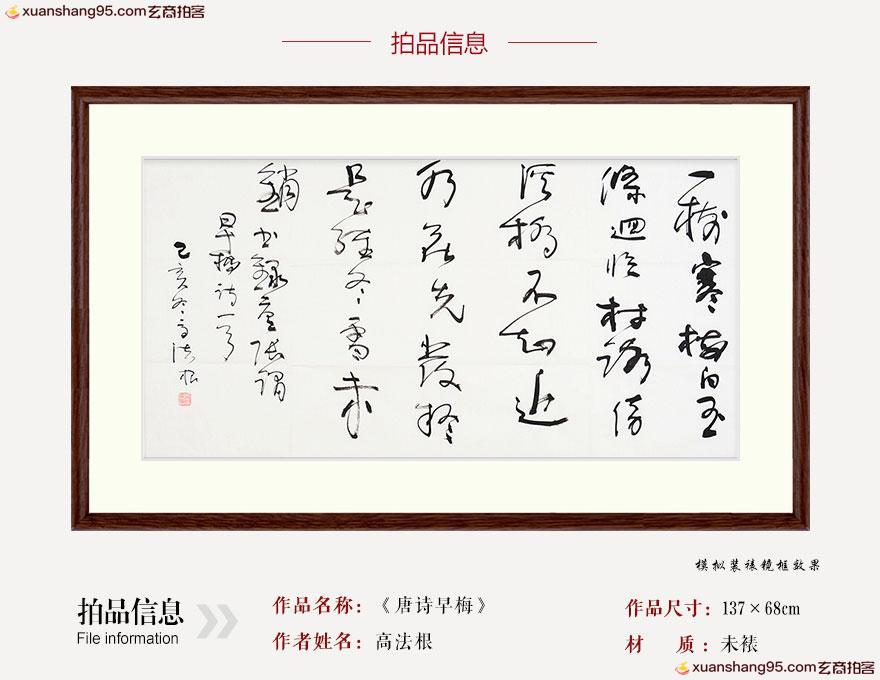 xuanshang95.com玄商拍客
拍品信息
一樹寒梅白玉
條迴臨村路傍
溪橋不知近
水花先發疑
是經冬雪未
銷 書錄唐張謂
早梅詩一首
己亥冬高法根
模拟装裱镜框效果
拍品信息
File information
作品名称：《唐诗早梅》
作者姓名：高法根
作品尺寸：137×68cm
材 质：未裱
xuanshang95.com玄商拍客